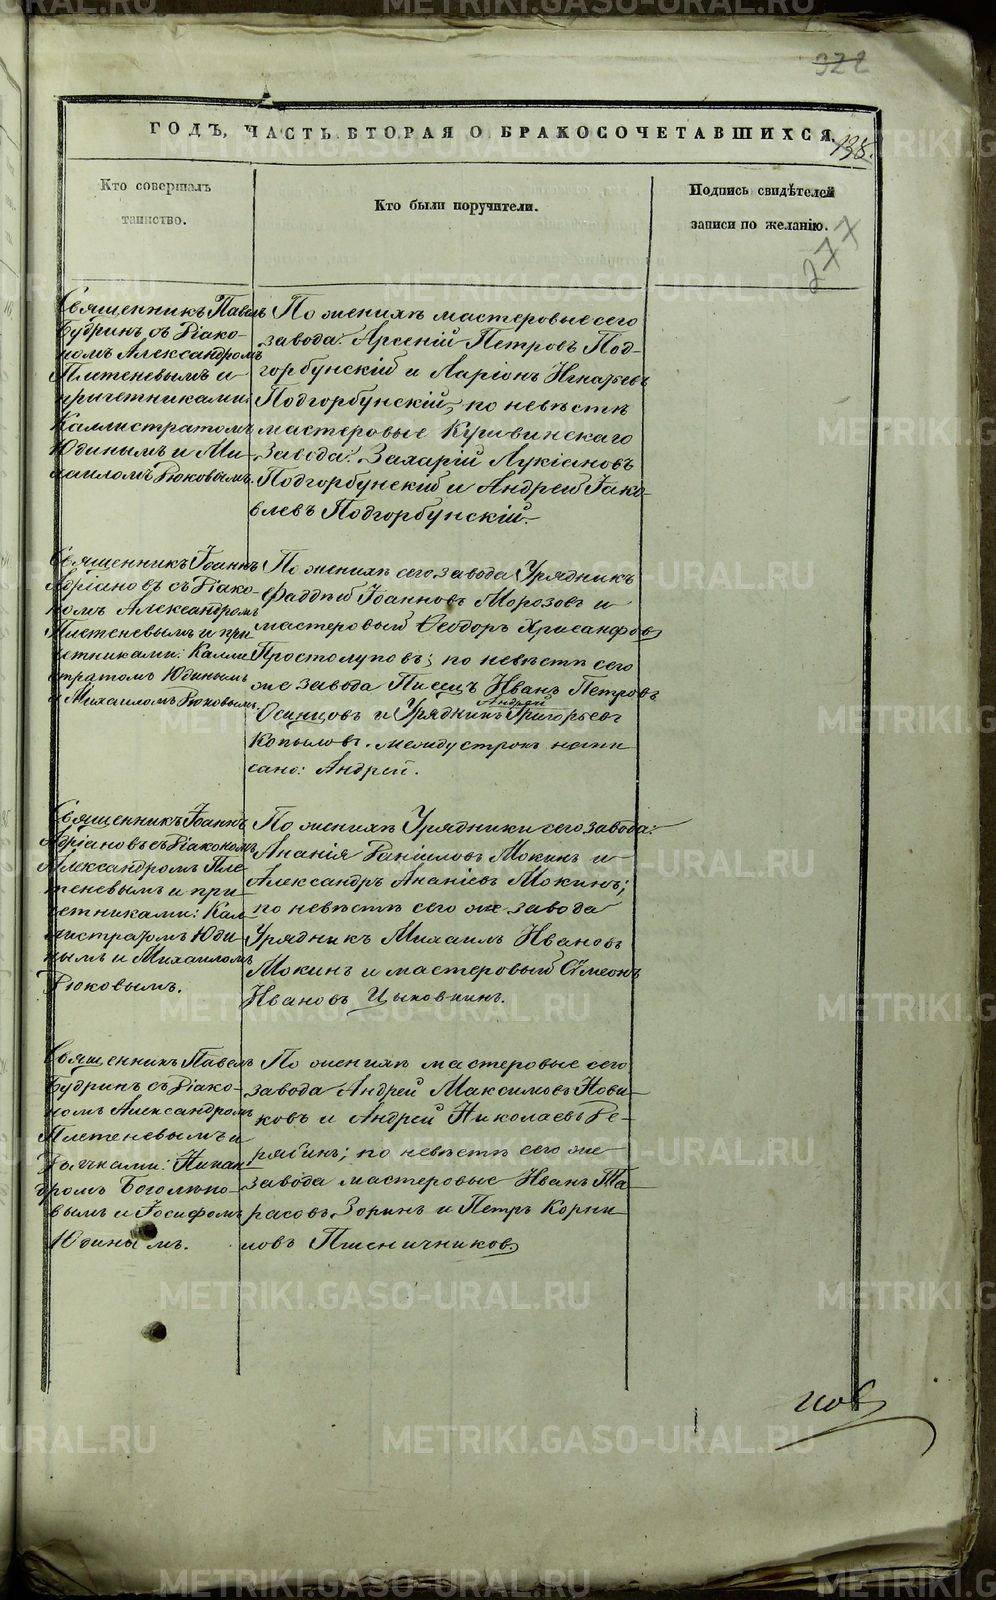 322
ГОДЪ, ЧАСТЬ ВТОРАЯ О БРАКОСОЧЕТАВШИХСЯ.
138.
Кто совершалъ
таинство.
Кто были поручители.
Подпись свидѣтелей
записи по желанію.
277
Священникъ Павелъ
Будринъ съ Діако-
номъ Александромъ
Плетеневымъ и
причетниками:
Каллистратомъ
Юдинымъ и Ми-
хаиломъ Рюковымъ.
По женихѣ мастеровые сего
завода: Арсеній Петровъ Под-
горбунскій и Ларіонъ Игнатьевъ
Подгорбунскій, по невѣстѣ
мастеровые Кушвинскаго
Завода: Захарій Лукіановъ
Подгорбунскій и Андрей Іако-
влевъ Подгорбунскій.
Священникъ Іоаннъ
Адріановъ съ Діако-
номъ Александромъ
Плетеневымъ и при
четниками: Калли
стратомъ Юдинымъ
и Михаиломъ Рюковымъ.
По женихѣ сего завода Урядникъ
Фаддѣй Іоанновъ Морозовъ и
мастеровый Ѳеодоръ Хрисанфовъ
Простолуповъ; по невѣстѣ сего
же завода Писецъ Иванъ Петровъ
Андрей
Осинцовъ и Урядникъ Григорьевъ
Копыловъ. Между строкъ напи
сано: Андрей.
Священникъ Іоаннъ
Адріановъ съ Діакономъ
Александромъ Пле
теневымъ и при
четниками: Кал-
листратомъ Юди
нымъ и Михаиломъ
Рюковымъ.
По женихѣ Урядники сего завода:
Ананія Даніиловъ Мокинъ и
Александръ Ананіевъ Мокинъ;
по невѣстѣ сего же завода
Урядникъ Михаилъ Ивановъ
Мокинъ и мастеровый Сѵмеонъ
Ивановъ Цыховкинъ.
Священникъ Павелъ
Будринъ съ Діако-
номъ Александромъ
Плетеневымъ и
Дьячками: Никан
дромъ Боголѣпо-
вымъ и Іосифомъ
Юдинымъ.
По женихѣ мастеровые сего
завода Андрей Максимовъ Нови-
ковъ и Андрей Николаевъ Де-
рябинъ; по невѣстѣ сего же
завода мастеровые Иванъ Та
расовъ Зоринъ и Петръ Корни
ловъ Пшеничниковъ.
новъ
METRIKI.GASO-URAL.RU